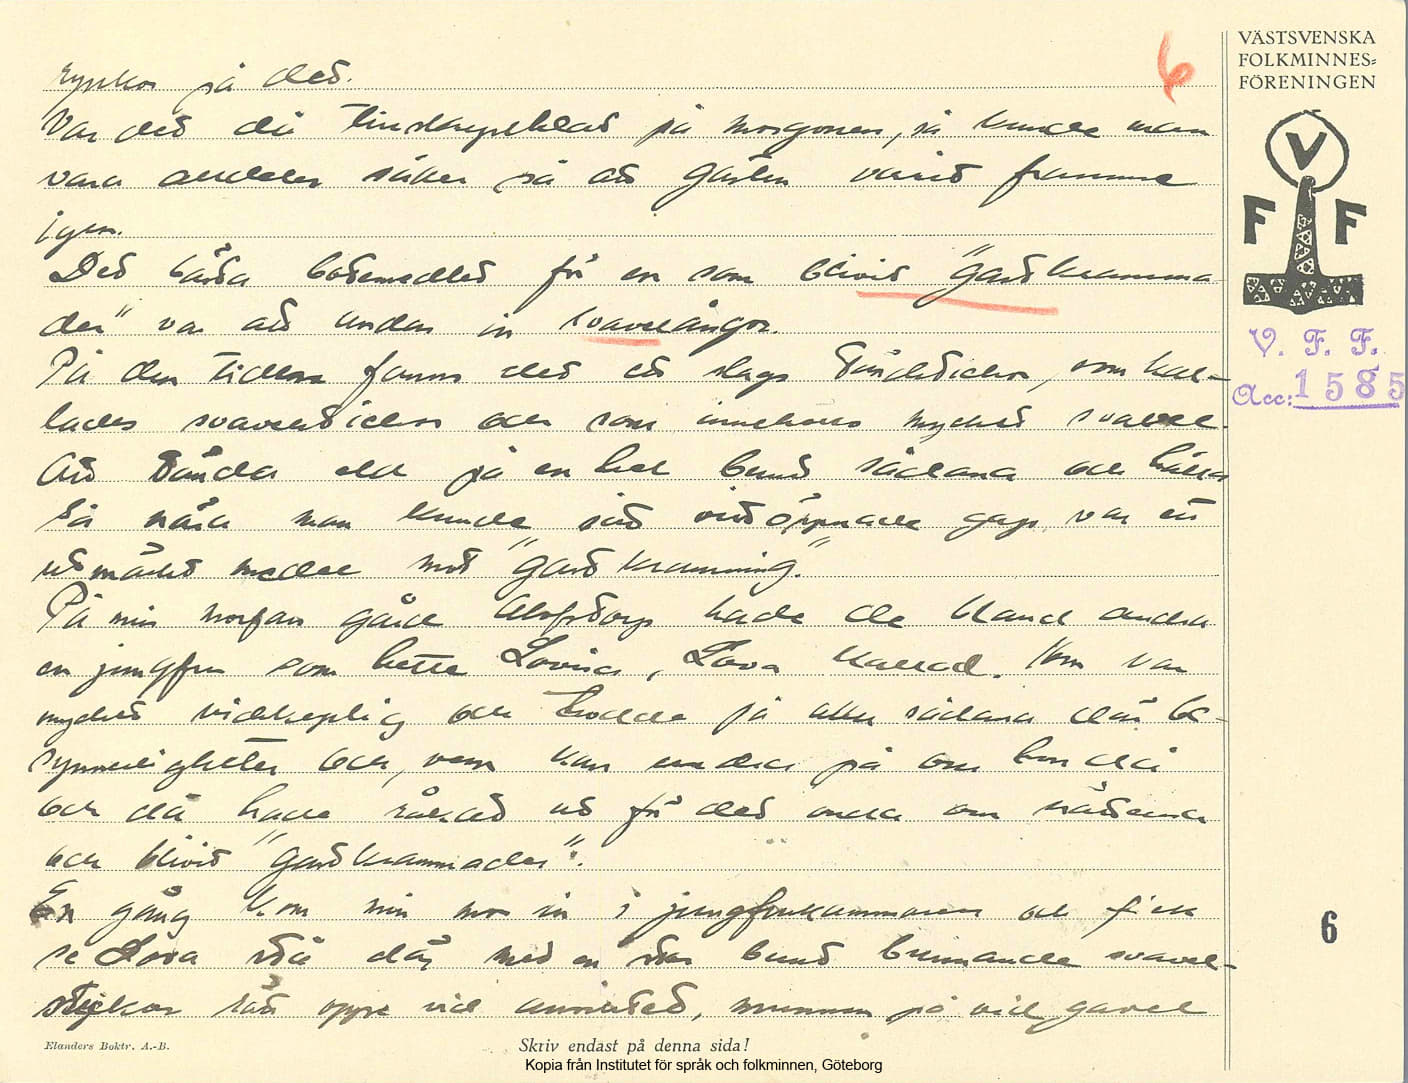 6
VÄSTSVENSKA
FOLKMINNES=
FÖRENINGEN
V
F F
V. F. F.
Acc: 1585
rygkor på det.
Var det då på morgonen, så kunde man
vara alldeles säker på att gasten varit framme
igen.
Det bästa botemedlet för en som blivit "gastkramma
der" var att andas in svavelångor.
På den tiden fanns det ett slags tändstickor, som kal-
lades svavelstickor och som innehöll mycket svavel.
Att tända eld på en hel bunt sådana och hålla
så nära man kunde sitt vidöppnade gap, var ett
utmärkt medel mot "gastkramning".
På min morfars gård hade de bland andra
en jungfru som hette Lovisa, Lova kallad. Hon var
mycket vidskeplig och trodde på alla sådana där be-
synnerligheter och, vem kan undra på om hon då
och då hade råkat ut för det onda om nätterna
och blivit "gastkrammader".
En gång kom min mor in i jungfrukammaren och fick
se Lova stå där med en stor bunt brinnande svavel-
stickor tätt oppe vid ansiktet, munnen på vid gavel
6
Elanders Boktr. A.-B.
Skriv endast på denna sida!
Kopia från Institutet för språk och folkminnen, Göteborg